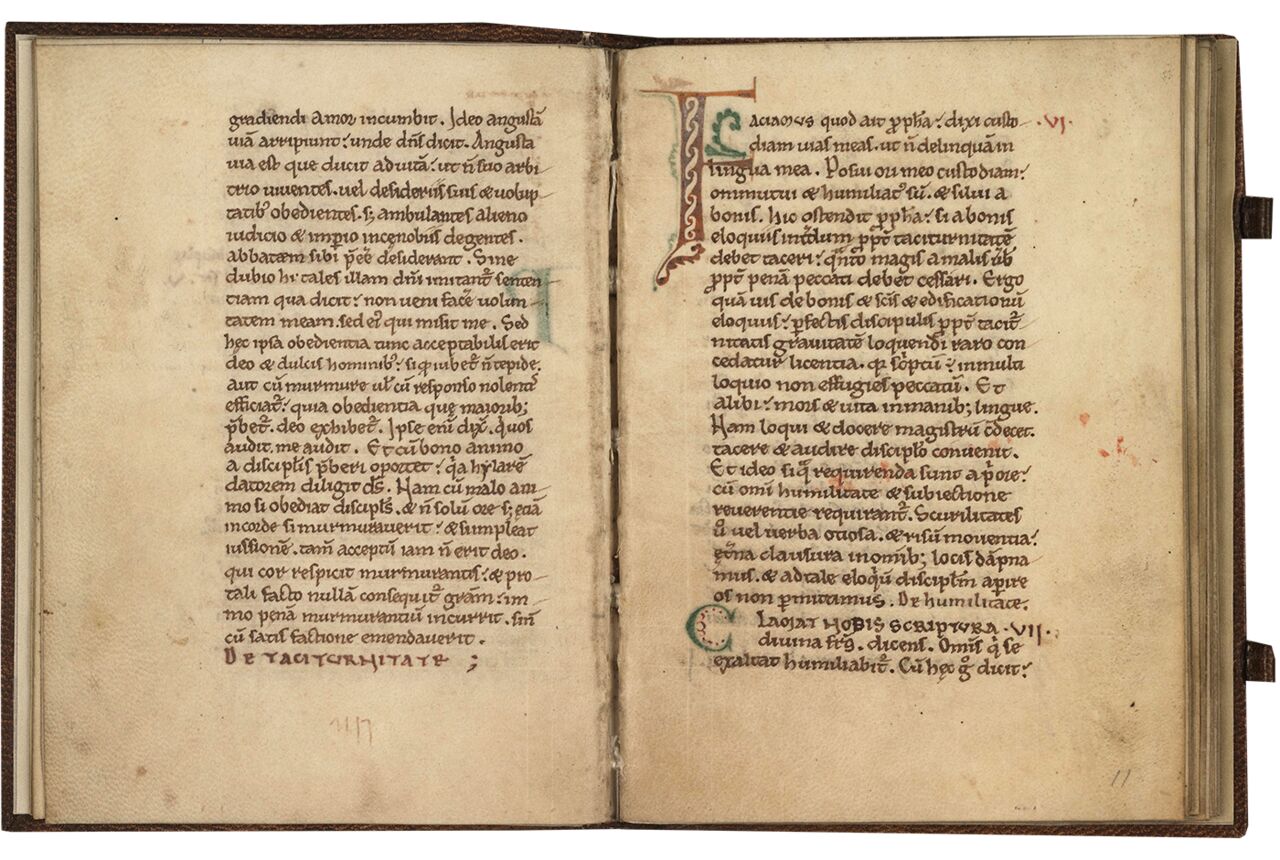 gradiendi amor incumbit. Ideo angustā
uiā arripiunt: unde dn̄s dicit. Angusta
uia est que ducit aduitā: ut n̄ suo arbi-
trio uiuentes. uel desideriis suis & uolup-
tatib; obedientes. s; ambulantes alieno
iudicio & imp̄io incenobiis degentes.
abbatem sibi p̄eē desiderant. Sine
dubio hi tales illam dn̄i imitant̄ senten-
tiam qua dicit: non ueni face uolun-
tatem meam. sed ei' qui misit me. Sed
hęc ipsa obedientia tunc acceptabilis erit
deo & dulcis hominib': si q̄ iubet̄ n̄ tepide.
aut cū murmure ul' cū responso nolenti'
efficiat̄: quia obedientia quę maiorib;
p̄bet̄. deo exhibet̄. Ipse eni dix̄. quos
audit. me audit. Et cū bono animo
a discipl̄is p̄beri oportet: qa hylarē
datorem diligit d̄s. Nam cū malo ani-
mo si obediat discipl̄s. & n̄ solū ore s; etiā
incorde si murmurauerit: & si impleat
iussionē. tam̄ acceptū iam n̄ erit deo.
qui cor respicit murmurantis: & pro-
tali facto nullā consequit̄ gr̄am: im-
mo penā murmurantiū incurrit. sin̄
cū satis factione emendauerit.
DE TACITURNITATE ;
117
FACIAMUS quod ait p̄pha: dixi custo- .VI.
diam uias meas. ut n̄ delinquā in
lingua mea. Posui ori meo custodiam:
ommutui & humiliat' sū. & silui a
bonis. hic ostendit p̄pha: si a bonis
eloquiis int̄dum p̄pt̄ taciturnitatē
debet taceri: q̄nto magis a malis ūb
p̄pt̄ penā peccati debet cessari. Ergo
quāuis de bonis & sc̄is & edificationū
eloquiis: p̄fectis discipulis p̄pt̄ tacit̄-
nitatis grauitatē loquendi raro con
cedatur licentia. q̄ sc̄ptū: inmulti
loquio non effugies peccatū. Et
alibi: mors & uita inmanib; linguę.
Nam loqui & docere magistrū c̄decet.
tacere & audire discipl̄o conuenit.
Et ideo si q̄ requirenda sunt a p̄ore:
cū omi humilitate & subiectione
reuerentie requirant̄. Scurilitates
u̇ uel uerba otiosa. & risū mouentia:
et̄na clausura inomib; locis dāpna
mus. & adtale eloq̇ū discipl̄m ap̄ire
os non p̄mittamus. De humilitate.
CLAMAT NOBIS SCRIPTURA .VII.
diuina fr̄s. dicens. Omis q̇ se
exaltat humiliabit̄. Cū hęc g̊ dicit:
11